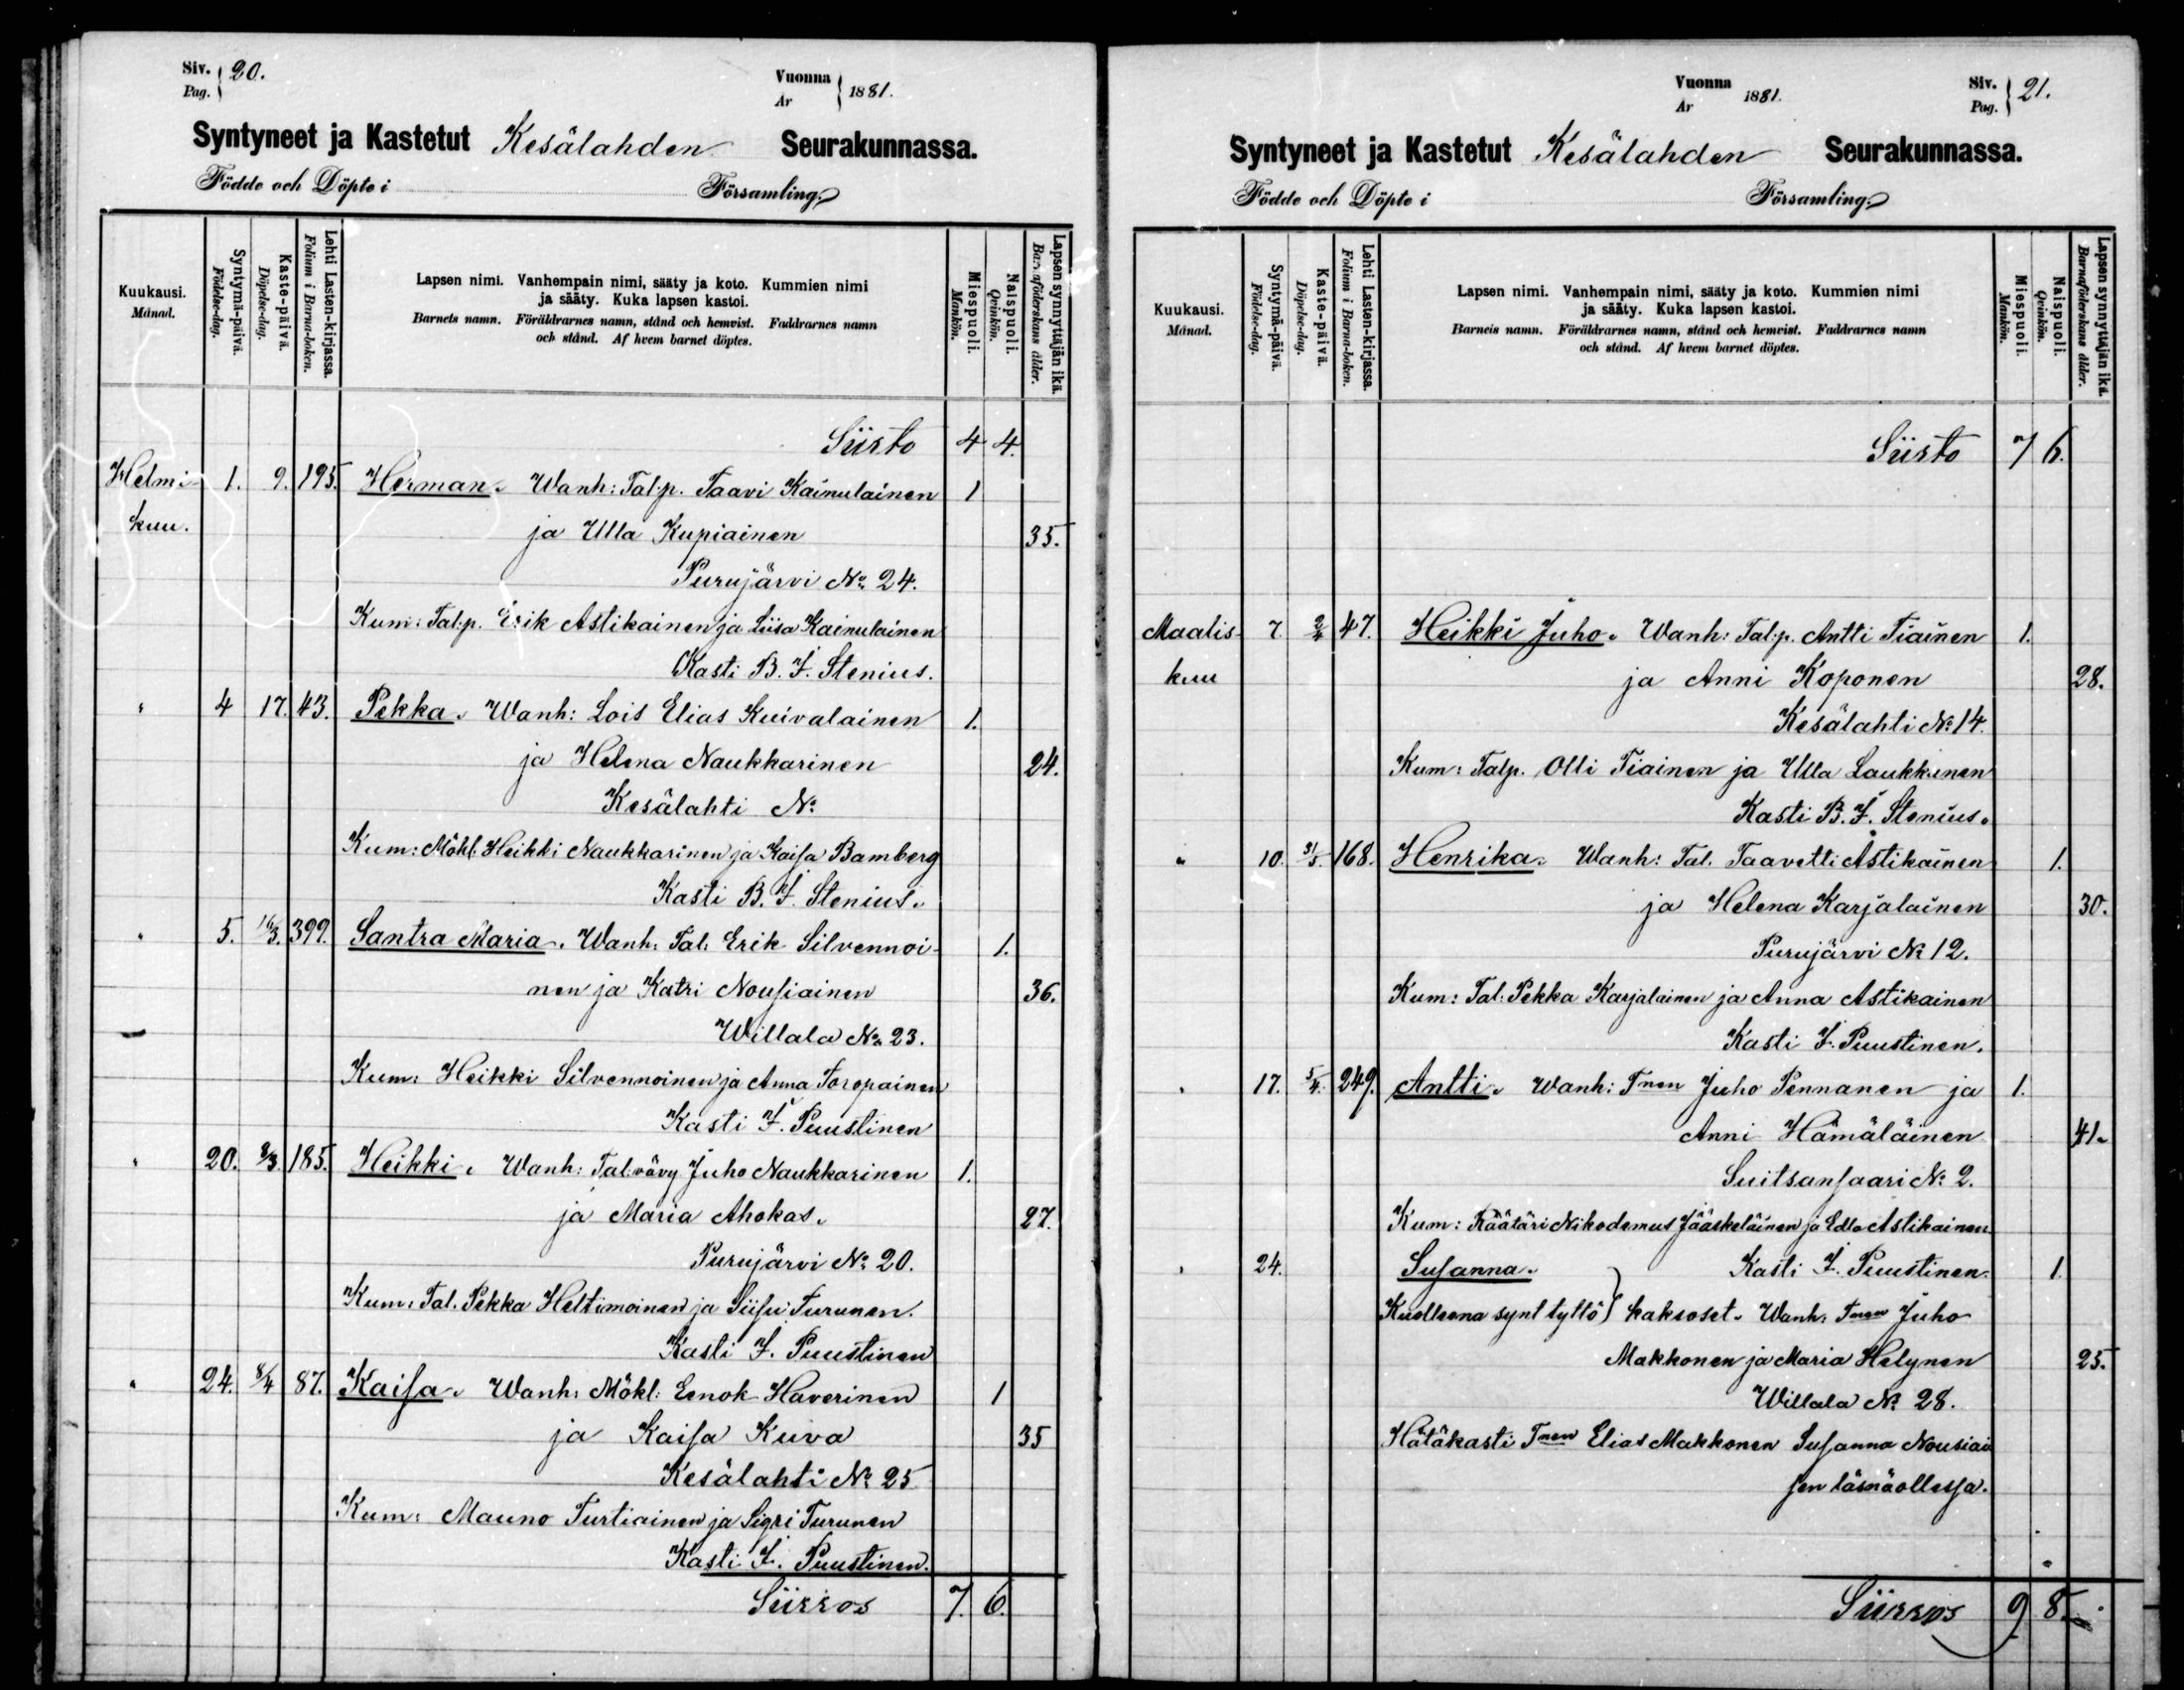 Siv. 20.
Pag.
Vuonna 1881.
Ar
Syntyneet ja Kastetut Kesälahden Seurakunnassa.
Födde och Döpte i Församling.
Kuukausi.
Månad.
Syntymä-päivä.
Födelse-dag.
Kaste-päivä.
Döpelse-dag.
Lehti Lasten-kirjassa.
Folium i Barna-boken.
Lapsen nimi. Vanhempain nimi, sääty ja koto. Kummien nimi
ja sääty. Kuka lapsen kastoi.
Barnets namn. Föräldrarnes namn, stånd och hemvist. Faddrarnes namn
och stånd. Af hvem barnet döptes.
Miespuoli.
Mankön.
Naispuoli.
Qvinkön.
Lapsen synnyttäjän ikä.
Barnaföderskans ålder.
Siirto 4 4.
Helmi- 1. 9. 195. Herman. Wanh: Tal:p. Taavi Kainulainen 1
kuu. ja Ulla Kupiainen 35.
Purujärvi No 24.
Kum: Tal:p. Erik Astikainen ja Liisa Kainulainen
Kasti B. F. Stenius.
" 4 17. 43. Pekka. Wanh: Lois Elias Kuivalainen 1.
ja Helena Naukkarinen 24.
Kesälahti No
Kum: Mökl. Heikki Naukkarinen ja Kaisa Bamberg
Kasti B. F. Stenius.
" 5. 16/3. 399. Santra Maria. Wanh: Tal. Erik Silvennoi- 1.
nen ja Katri Nousiainen 36.
Willala No 23.
Kum: Heikki Silvennoinen ja Anna Toropainen
Kasti F. Puustinen
" 20. 2/3. 185. Heikki. Wanh: Tal.vävy Juho Naukkarinen 1.
ja Maria Ahokas. 27.
Purujärvi No 20.
Kum: Tal. Pekka Heltimoinen ja Turunen.
Kasti F. Puustinen
" 24. 8/4 87. Kaisa. Wanh: Mökl: Eenok Haverinen 1
ja Kaisa Kuva 35
Kesälahti No 25
Kum: Mauno Turtiainen ja Sigri Turunen
Kasti F. Puustinen.
Siirros 7. 6.
Vuonna 1881.
Ar
Siv. 21.
Pag.
Syntyneet ja Kastetut Kesälahden Seurakunnassa.
Födde och Döpte i Församling.
Kuukausi.
Månad.
Syntymä-päivä.
Födelse-dag.
Kaste-päivä.
Döpelse-dag.
Lehti Lasten-kirjassa.
Folium i Barna-boken.
Lapsen nimi. Vanhempain nimi, sääty ja koto. Kummien nimi
ja sääty. Kuka lapsen kastoi.
Barnets namn. Föräldrarnes namn, stånd och hemvist. Faddrarnes namn
och stånd. Af hvem barnet döptes.
Miespuoli.
Mankön.
Naispuoli.
Qvinkön.
Lapsen synnyttäjän ikä.
Barnaföderskans ålder.
Siirto 7 6.
Maalis- 7. 2/4 47. Heikki Juho. Wanh: Tal:p. Antti Tiainen 1.
kuu ja Anni Koponen 28.
Kesälahti No 14.
Kum: Talp. Olli Tiainen ja Ulla Laukkanen
Kasti B. F. Stenius.
" 10. 31/5. 168. Henrika. Wanh: Tal. Taavetti Astikainen 1.
ja Helena Karjalainen 30.
Purujärvi No 12.
Kum: Tal: Pekka Karjalainen ja Anna Astikainen
Kasti F. Puustinen.
" 17. 5/4. 249. Antti. Wanh: Tnen Juho Pennanen ja 1.
Anni Hämäläinen 41.
Suitsansaari No 2.
Kum: Räätäri Nikodemus Jääskeläinen ja Edla Astikainen
" 24. Susanna. Kasti F. Puustinen. 1.
Kuolleena synt tyttö } kaksoset. Wanh: Tnen Juho
Makkonen ja Maria Helynen 25.
Willala No 28.
Hätäkasti Tnen Elias Makkonen Susanna Nousiai
sen läsnäollessa.
Siirros 9 8.